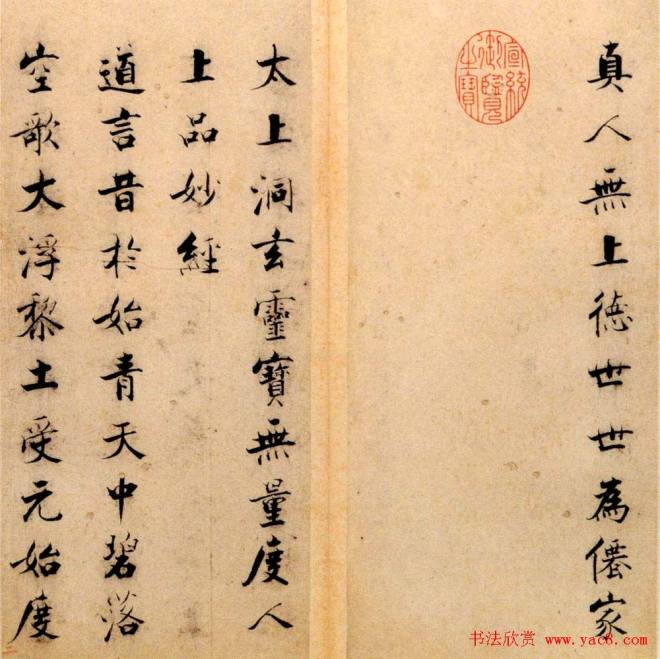 真人無上德世世為僊家
宣統御覽之寶
太上洞玄靈寶無量度人
上品妙經
道言昔於始青天中碧落
空歌大浮黎土受元始度
书法欣赏 www.yac8.com